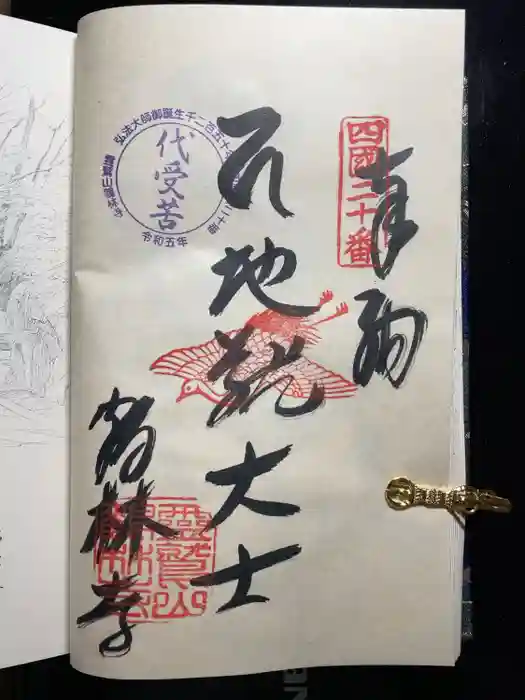 四國二十番
奉納
地蔵大士
鶴林寺
弘法大師御誕生千二百五十年
代受苦
霊鷲山鶴林寺
令和五年